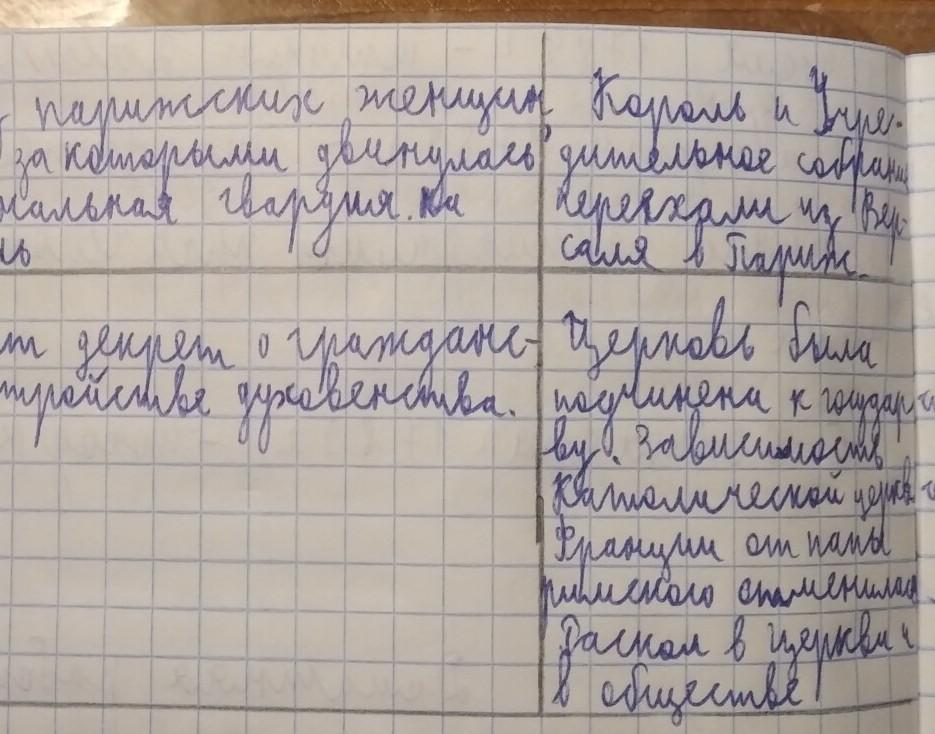 парижских женщин
за которыми двинулась
нальная гвардия. на
нь
Король и Учре-
дительное собрание
переехали из Вер-
саля в Париж.
т декрет о гражданс-
тройстве духовенства.
Церковь была
подчинена к государст
ву. Зависимость
Католической церкви
Франции от папы
римского отменилась
Раскол в церкви и
в обществе